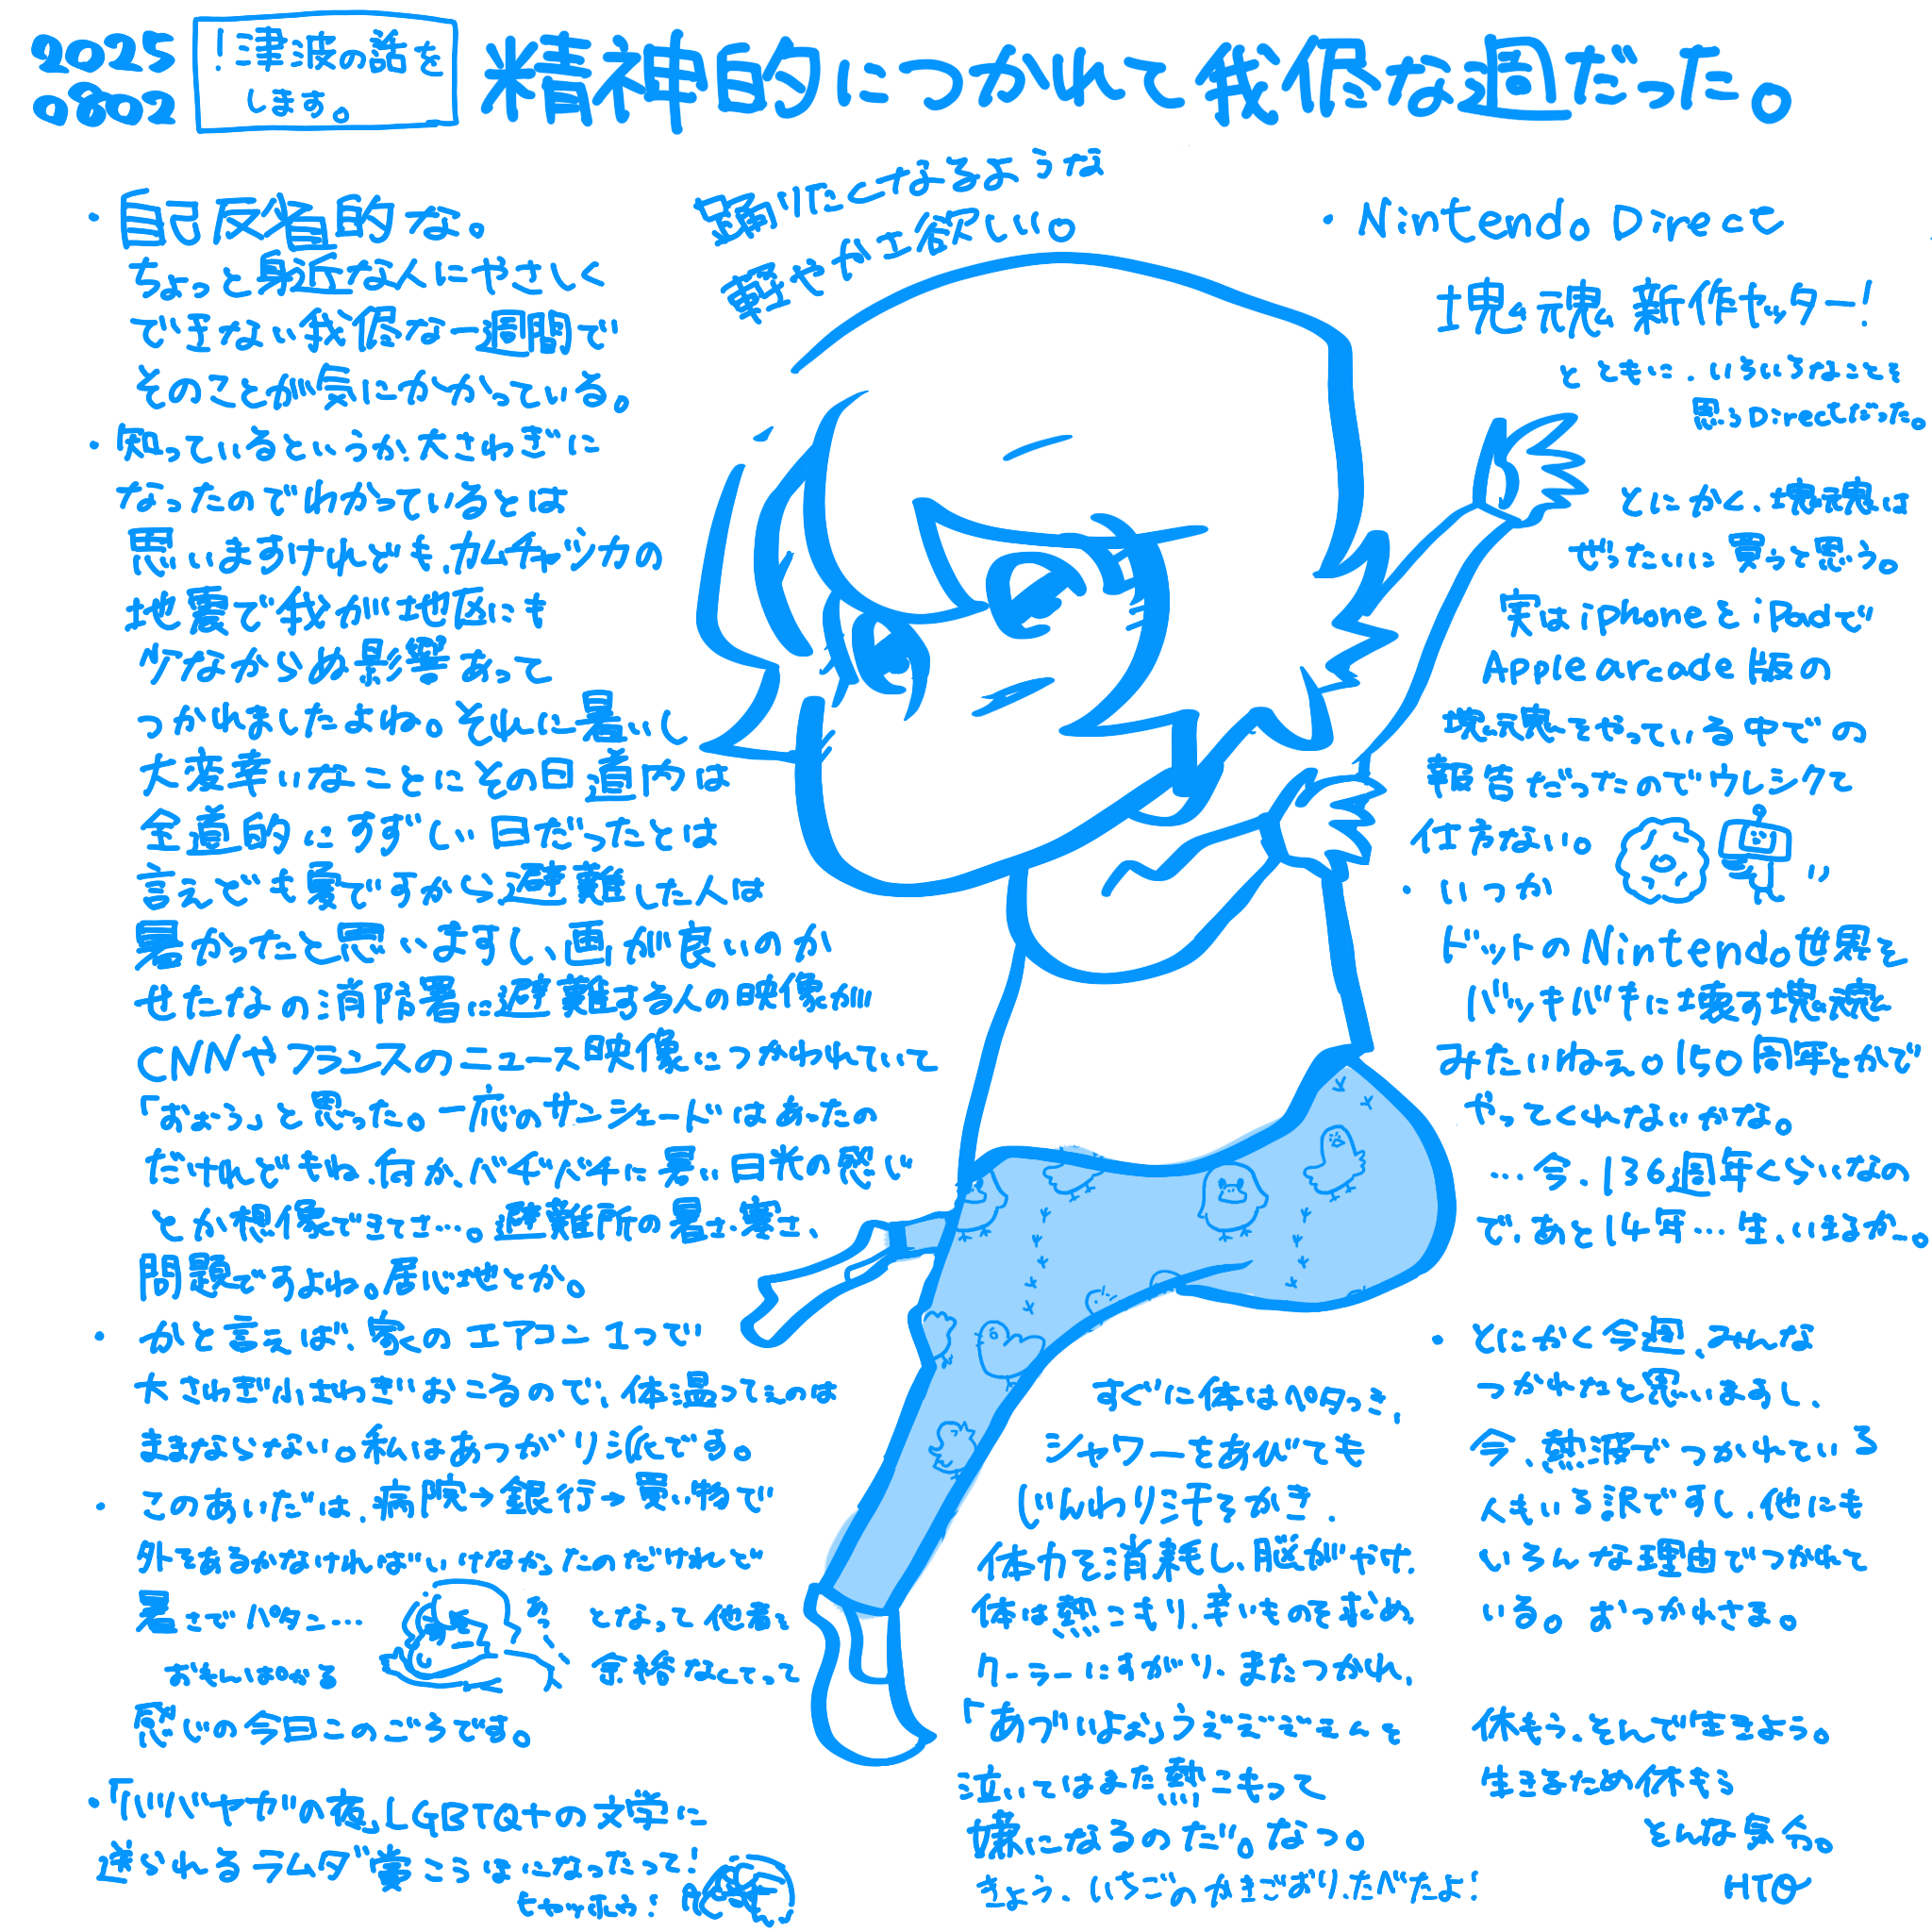 2025
0802
！津波の話を
します。
精神的につかれて我侭な週だった。
踊りたくなるような
軽やかさ欲しい。
・自己反省的な。
ちょっと身近な人にやさしく
できない我侭な一週間で
そのことが気にかかっている。
・知っているというか、大さわぎに
なったのでわかっているとは
思いますけれども、カムチャツカの
地震で我が地区にも
少なからぬ影響あって
つかれましたよね。それに暑いし
大変幸いなことにその日道内は
全道的にすずしい日だったとは
言えでも夏ですから避難した人は
暑かったと思いますし、画が良いのか
せたなの消防署に避難する人の映像が
CNNやフランスのニュース映像につかわれていて
「おぉう」と思った。一応のサンシェードはあったの
だけれどもね、何か、バチバチに暑い日光の感じ
とか想像できてさ…。避難所の暑さ、寒さ、
問題ですよね。居心地とか。
・かと言えば、家のエアコン1つで
大さわぎ小さわぎおこるので、体温ってえのは
ままならない。私はあつがり派です。
・このあいだは、病院→銀行→買い物で
外をあるかなければいけなかったのだけれど
暑さでパタン…
あっ
となって他者を
おもんぱかる
余裕なくてって
感じの今日このごろです。
・「ババヤガの夜」LGBTQ+の文学に
送られるラムダ賞こうほになったって!
ヒャッホウ!
すぐに体はペタつき、
シャワーをあびても
じんわり汗をかき、
体力を消耗し、脳がやけ、
体は熱こもり、辛いものを求め、
クーラーにすがり、またつかれ、
「あづいよぉ」うぞぞぞぞぇんを
泣いてはまた熱こもって
嫌になるのだ。なつ。
きょう、いちごのかきごおり、たべたよ!
・Nintendo Direct
塊魂新作ヤッター!
とともに、いろいろなことを
思うDirectだった。
とにかく、塊魂は
ぜったいに買うって思う。
実はiphoneとiPadで
Apple arcade版の
塊魂をやっている中での
報告だったのでウレシクて
仕方ない。
・いつか
ドットのNintendo世界を
バッキバキに壊す塊魂
みたいねぇ。150周年とかで
やってくれないかな。
…今、136週年くらいなの
で、あと14年…生、いきるか…。
・とにかく今週、みんな
つかれたと思いますし、
今、熱波でつかれている
人もいる訳ですし、他にも
いろんな理由でつかれて
いる。おつかれさま。
休もう、そんで生きよう。
生きるため休もう
そんな気分。
HTO